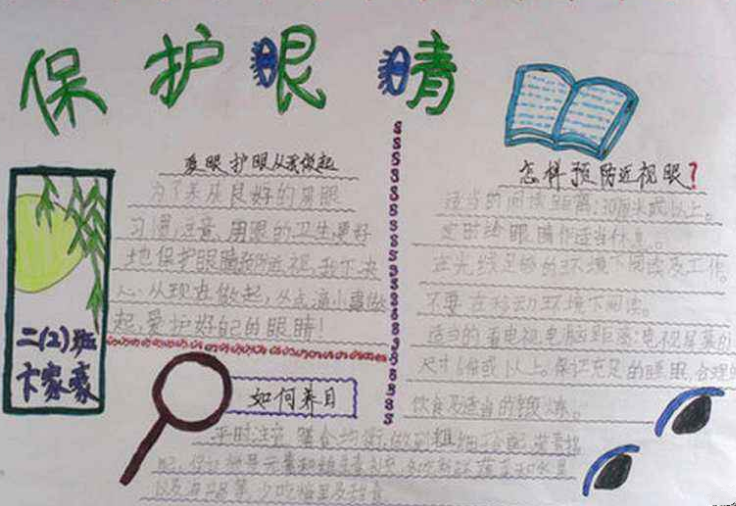 保护眼睛
爱眼护眼从我做起
为了养成良好的用眼
习惯,注意用眼的卫生,更好
地保护眼睛预防近视,我下决
心,从现在做起,从点滴小事做
起,爱护好自己的眼睛!
二(2)班
卞家豪
怎样预防近视眼?
适当的阅读距离:30厘米或以上。
定时给眼睛作适当休息。
在光线足够的环境下阅读及工作。
不要在移动环境下阅读。
适当的看电视电脑距离:电视屏幕的
尺寸6倍或以上。保证充足的睡眠,合理的
饮食及适当的锻炼。
如何养目
平时注意膳食均衡,做到粗细搭配,荤素搭
配,保证
以及海